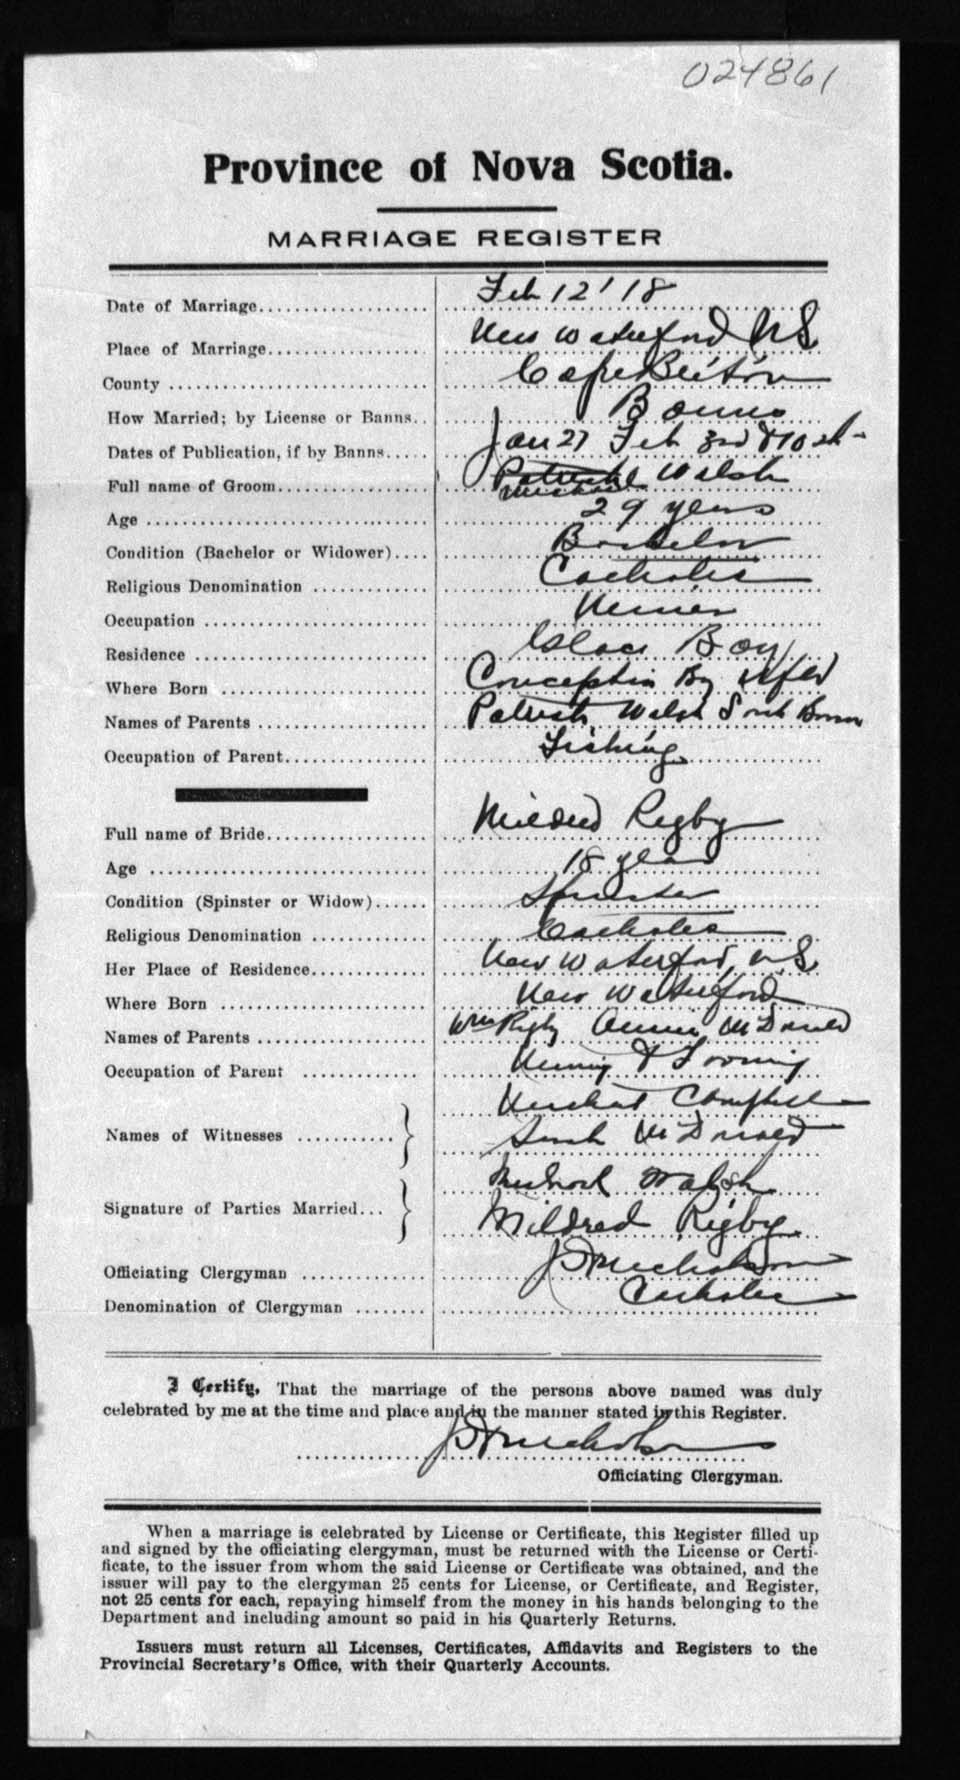 024861
Province of Nova Scotia.
MARRIAGE REGISTER
Date of Marriage Feb 12 '18
Place of Marriage New Waterford NS
County Cape Breton
How Married; by License or Banns Banns
Dates of Publication, if by Banns Jan 27 Feb 3rd & 10th
Full name of Groom Patrick Walsh
Michael
Age 29 years
Condition (Bachelor or Widower) Bachelor
Religious Denomination Catholic
Occupation Miner
Residence Glace Bay
Where Born Conception Bay Nfld
Names of Parents Patrick Walsh Sarah
Occupation of Parent Fishing
Full name of Bride Mildred Rigby
Age 18 years
Condition (Spinster or Widow) Spinster
Religious Denomination Catholic
Her Place of Residence New Waterford, NS
Where Born New Waterford
Names of Parents Wm Rigby Annie McDonald
Occupation of Parent Mining &
Names of Witnesses Michael Campbell
Sarah McDonald
Signature of Parties Married Michael Walsh
Mildred Rigby
Officiating Clergyman J H Nicholson
Denomination of Clergyman Catholic
I Certify, That the marriage of the persons above named was duly
celebrated by me at the time and place and in the manner stated in this Register.
J H Nicholson
Officiating Clergyman.
When a marriage is celebrated by License or Certificate, this Register filled up
and signed by the officiating clergyman, must be returned with the License or Certi-
ficate, to the issuer from whom the said License or Certificate was obtained, and the
issuer will pay to the clergyman 25 cents for License, or Certificate, and Register,
not 25 cents for each, repaying himself from the money in his hands belonging to the
Department and including amount so paid in his Quarterly Returns.
Issuers must return all Licenses, Certificates, Affidavits and Registers to the
Provincial Secretary's Office, with their Quarterly Accounts.